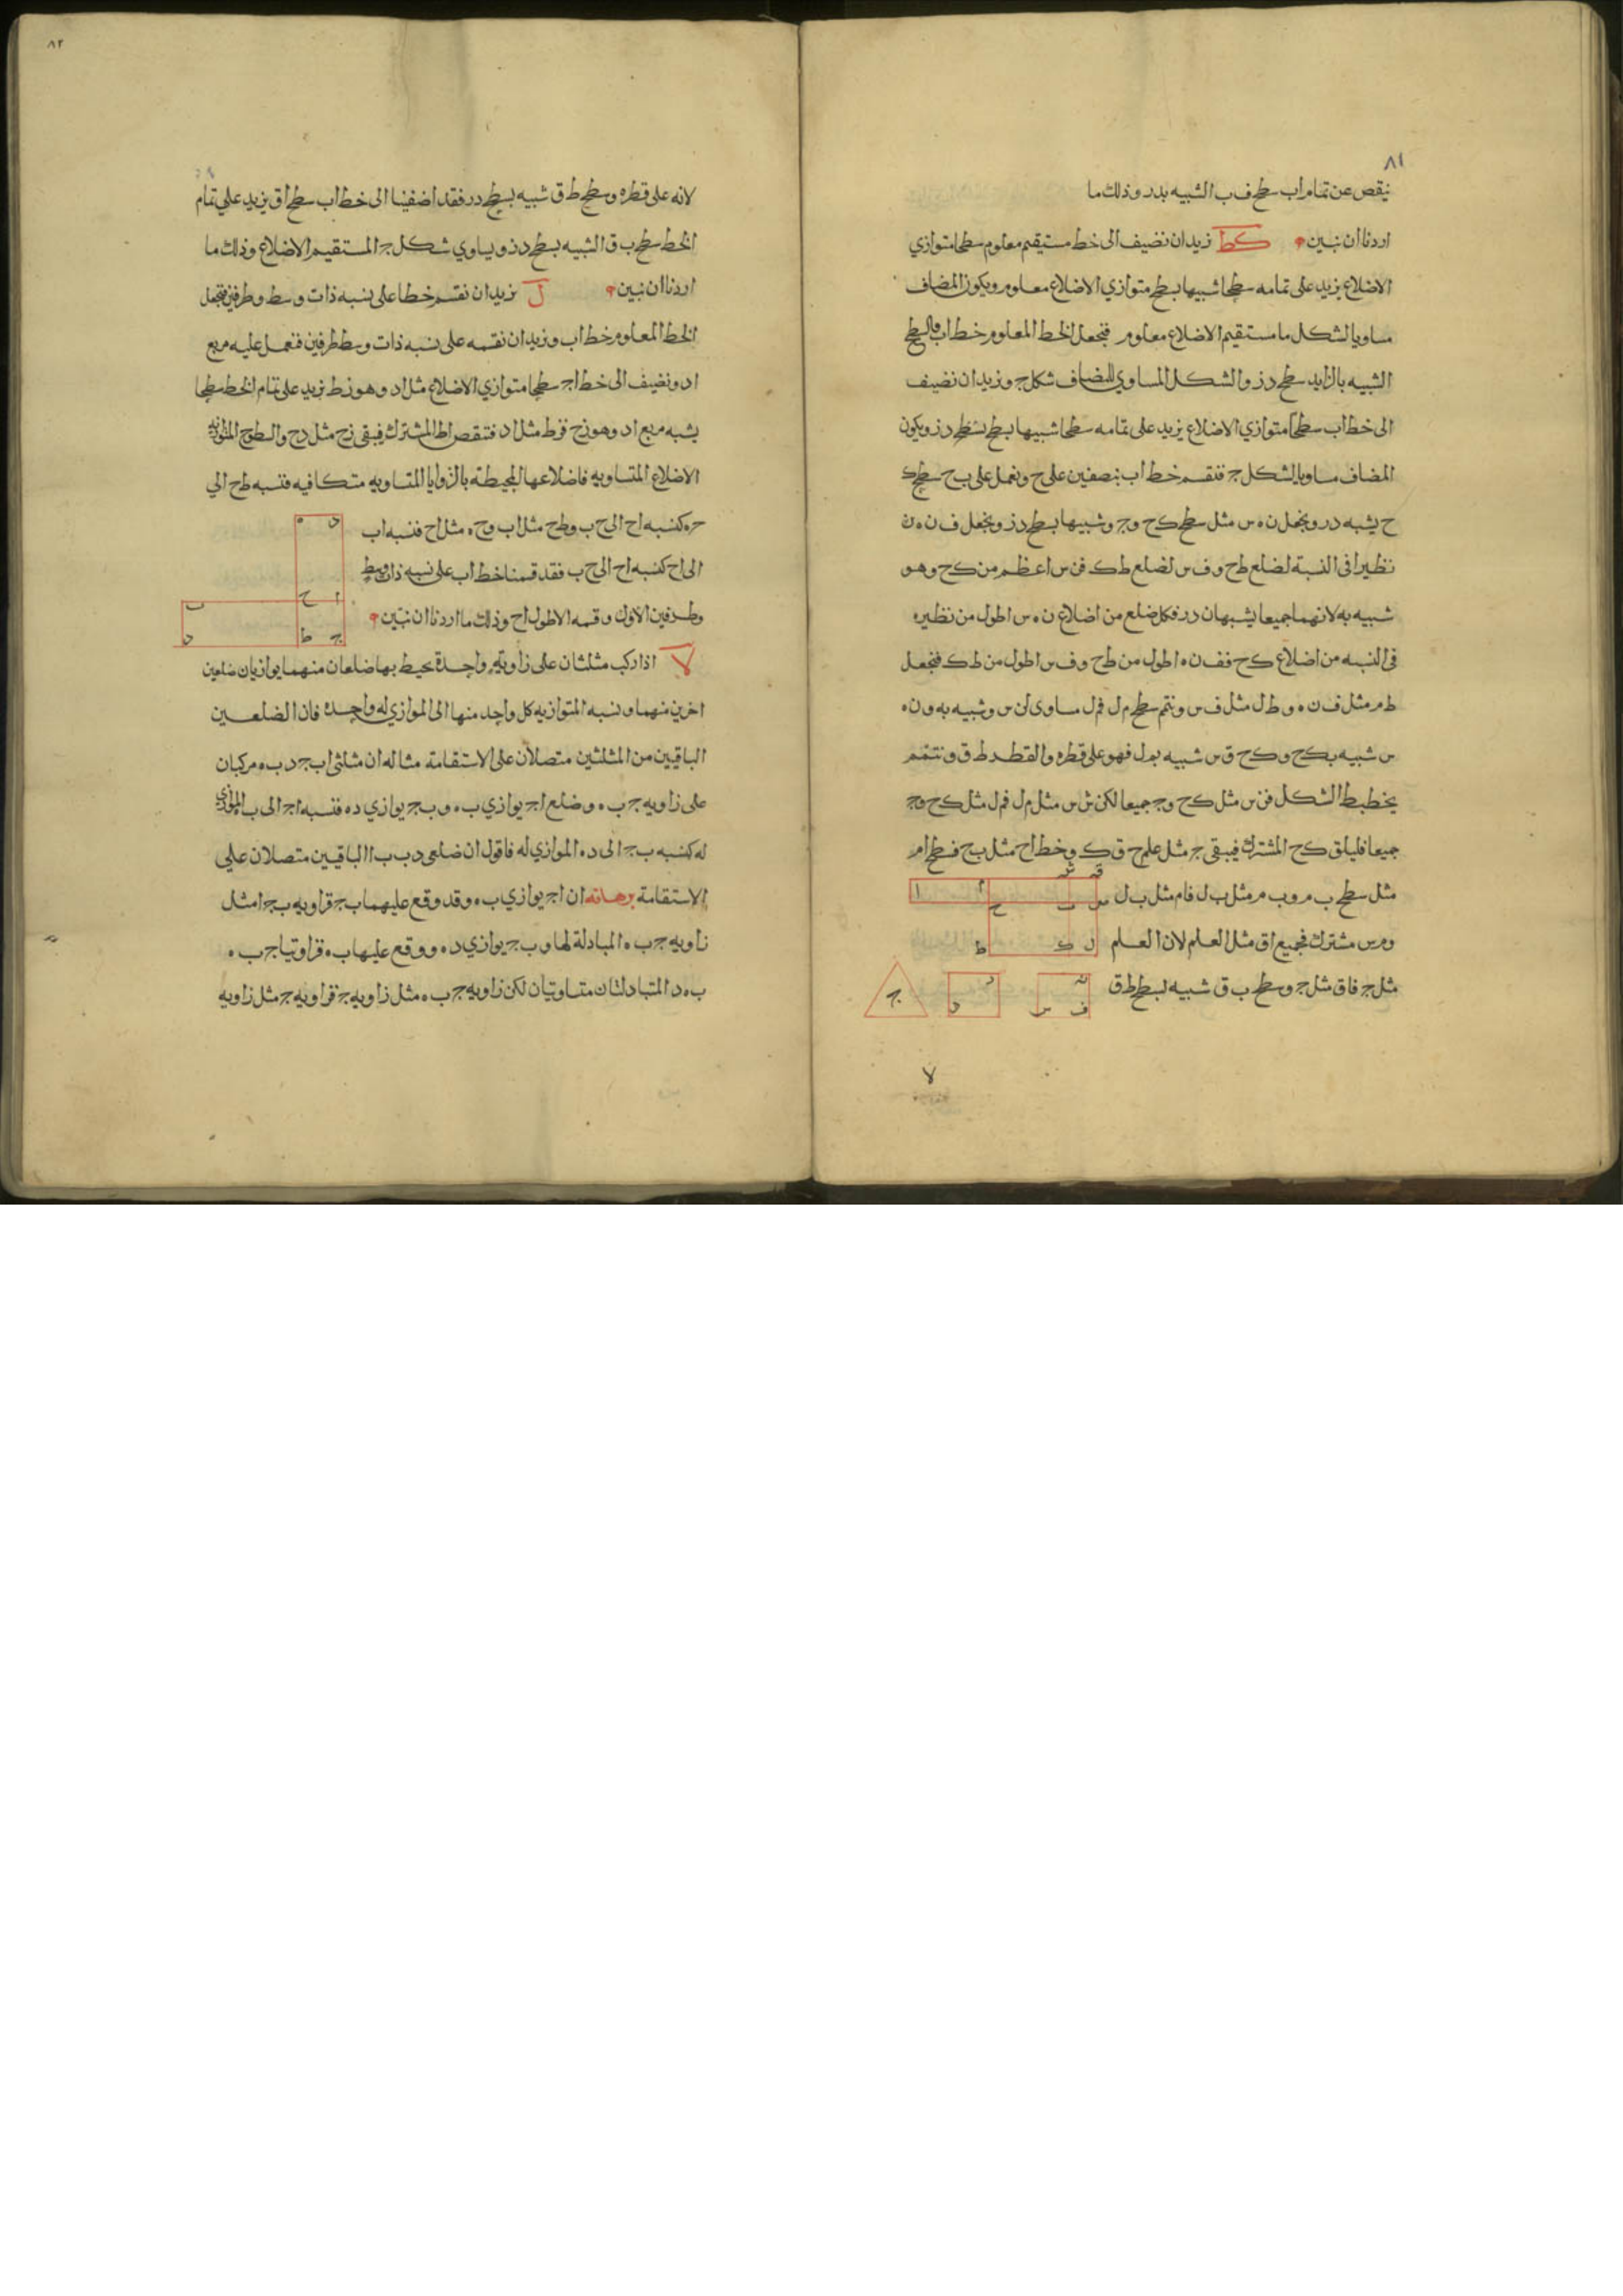 ٨١
ينقص عن تمام اب سطح ف ب الشبيه بدر وذلك ما
اردنا ان نبين كط نريد ان نضيف الى خط مستقيم معلوم سطحا متوازي
الاضلاع يزيد على تمامه سطحا شبيها بسطح متوازي الاضلاع معلوم ويكون المضاف
مساويا لشكل ما مستقيم الاضلاع معلوم فنجعل الخط المعلوم خط اب والسطح
الشبيه بالزايد سطح در والشكل المساوي للمضاف شكل ج ونريد ان نضيف
الى خط اب سطحا متوازي الاضلاع يزيد على تمامه سطحا شبيها بسطح در ويكون
المضاف مساويا لشكل ج فنقسم خط اب بنصفين على ح ونعمل على ب ح سطح ك
ح يشبه در ونجعل ن ه س مثل سطح ك ح و ج وشبيها بسطح در ونجعل ف ن ه ن
نظيرا في النسبة لضلع ط ح و ف س لضلع ط ك ف ن س اعظم من ك ح وهو
شبيه به لانهما جميعا يشبهان در فكل ضلع من اضلاع ن ه س اطول من نظيره
في النسبه من اضلاع ك ح ف ف ن ه اطول من ط ح و ف س اطول من ط ك فنجعل
ط م مثل ف ن ه و ط ل مثل ف س ونتمم سطح م ل ف م ل مساوى ل ن س وشبيه به و ن ه
س شبيه ب ك ح و ك ح ق س شبيه ب م ل فهو على قطره والقطر ط ق ونتمم
تخطيط الشكل ف ن س مثل ك ح و ج جميعا لكن ن س مثل م ل ف م ل مثل ك ح و ج
جميعا فليلق ك ح المشترك فيبقى ج مثل علم ح ق ك وخط ا ح مثل ب ح فسطح ا م
مثل سطح ب م و ب م مثل ب ل فا م مثل ب ل
و م س مشترك فجميع ا ق مثل العلم لان العلم
مثل ج فا ق مثل ج وسطح ب ق شبيه لسطح ط ق
لا
٨٢
لانه على قطره وسطح ط ق شبيه بسطح در فقد اضفنا الى خط اب سطح ا ق يزيد على تمام
الخط سطح ب ق الشبيه بسطح در ويساوي شكل ج المستقيم الاضلاع وذلك ما
اردنا ان نبين ل نريد ان نقسم خطا على نسبه ذات وسط وطرفين فنجعل
الخط المعلوم خط اب ونريد ان نقسمه على نسبه ذات وسط وطرفين فنعمل عليه مربع
ا د ونضيف الى خط ا ج سطحا متوازي الاضلاع مثل ا د وهو ز ط يزيد على تمام الخط سطحا
يشبه مربع ا د وهو ز ح ف ز ط مثل ا د فننقص ا ط المشترك فيبقى ز ح مثل د ح والسطوح المتوازيه
الاضلاع المتساويه فاضلاعها المحيطة بالزوايا المتساويه متكافيه فنسبه ط ح الى
ح ه كنسبه ا ح الى ح ب و ط ح مثل اب و ح ه مثل ا ح فنسبه اب
الى ا ح كنسبه ا ح الى ح ب فقد قسمنا خط اب على نسبه ذات وسط
وطرفين الاول وقسمه الاطول ا ح وذلك ما اردنا ان نبين
لا اذا ركب مثلثان على زاويةٍ واحدة يحيط بها ضلعان منهما يوازيان ضلعين
اخرين منهما ونسبه المتوازيه كل واحد منها الى الموازي له واحده فان الضلعين
الباقيين من المثلثين متصلان على الاستقامة مثاله ان مثلثي اب ج د ب ه مركبان
على زاويه ج ب ه وضلع ا ج يوازي ب ه و ب ج يوازي د ه فنسبه ا ج الى ب ه الموازي
له كنسبه ب ج الى د ه الموازي له فاقول ان ضلعى د ب ب ا الباقيين متصلان على
الاستقامة برهانه ان ا ج يوازي ب ه وقد وقع عليهما ب ج فزاويه ب ج ا مثل
زاويه ج ب ه المبادلة لها و ب ج يوازي د ه ووقع عليها ب ه فزاويتا ج ب ه
ب ه د المتبادلتان متساويتان لكن زاويه ج ب ه مثل زاويه ج فزاويه ج مثل زاويه